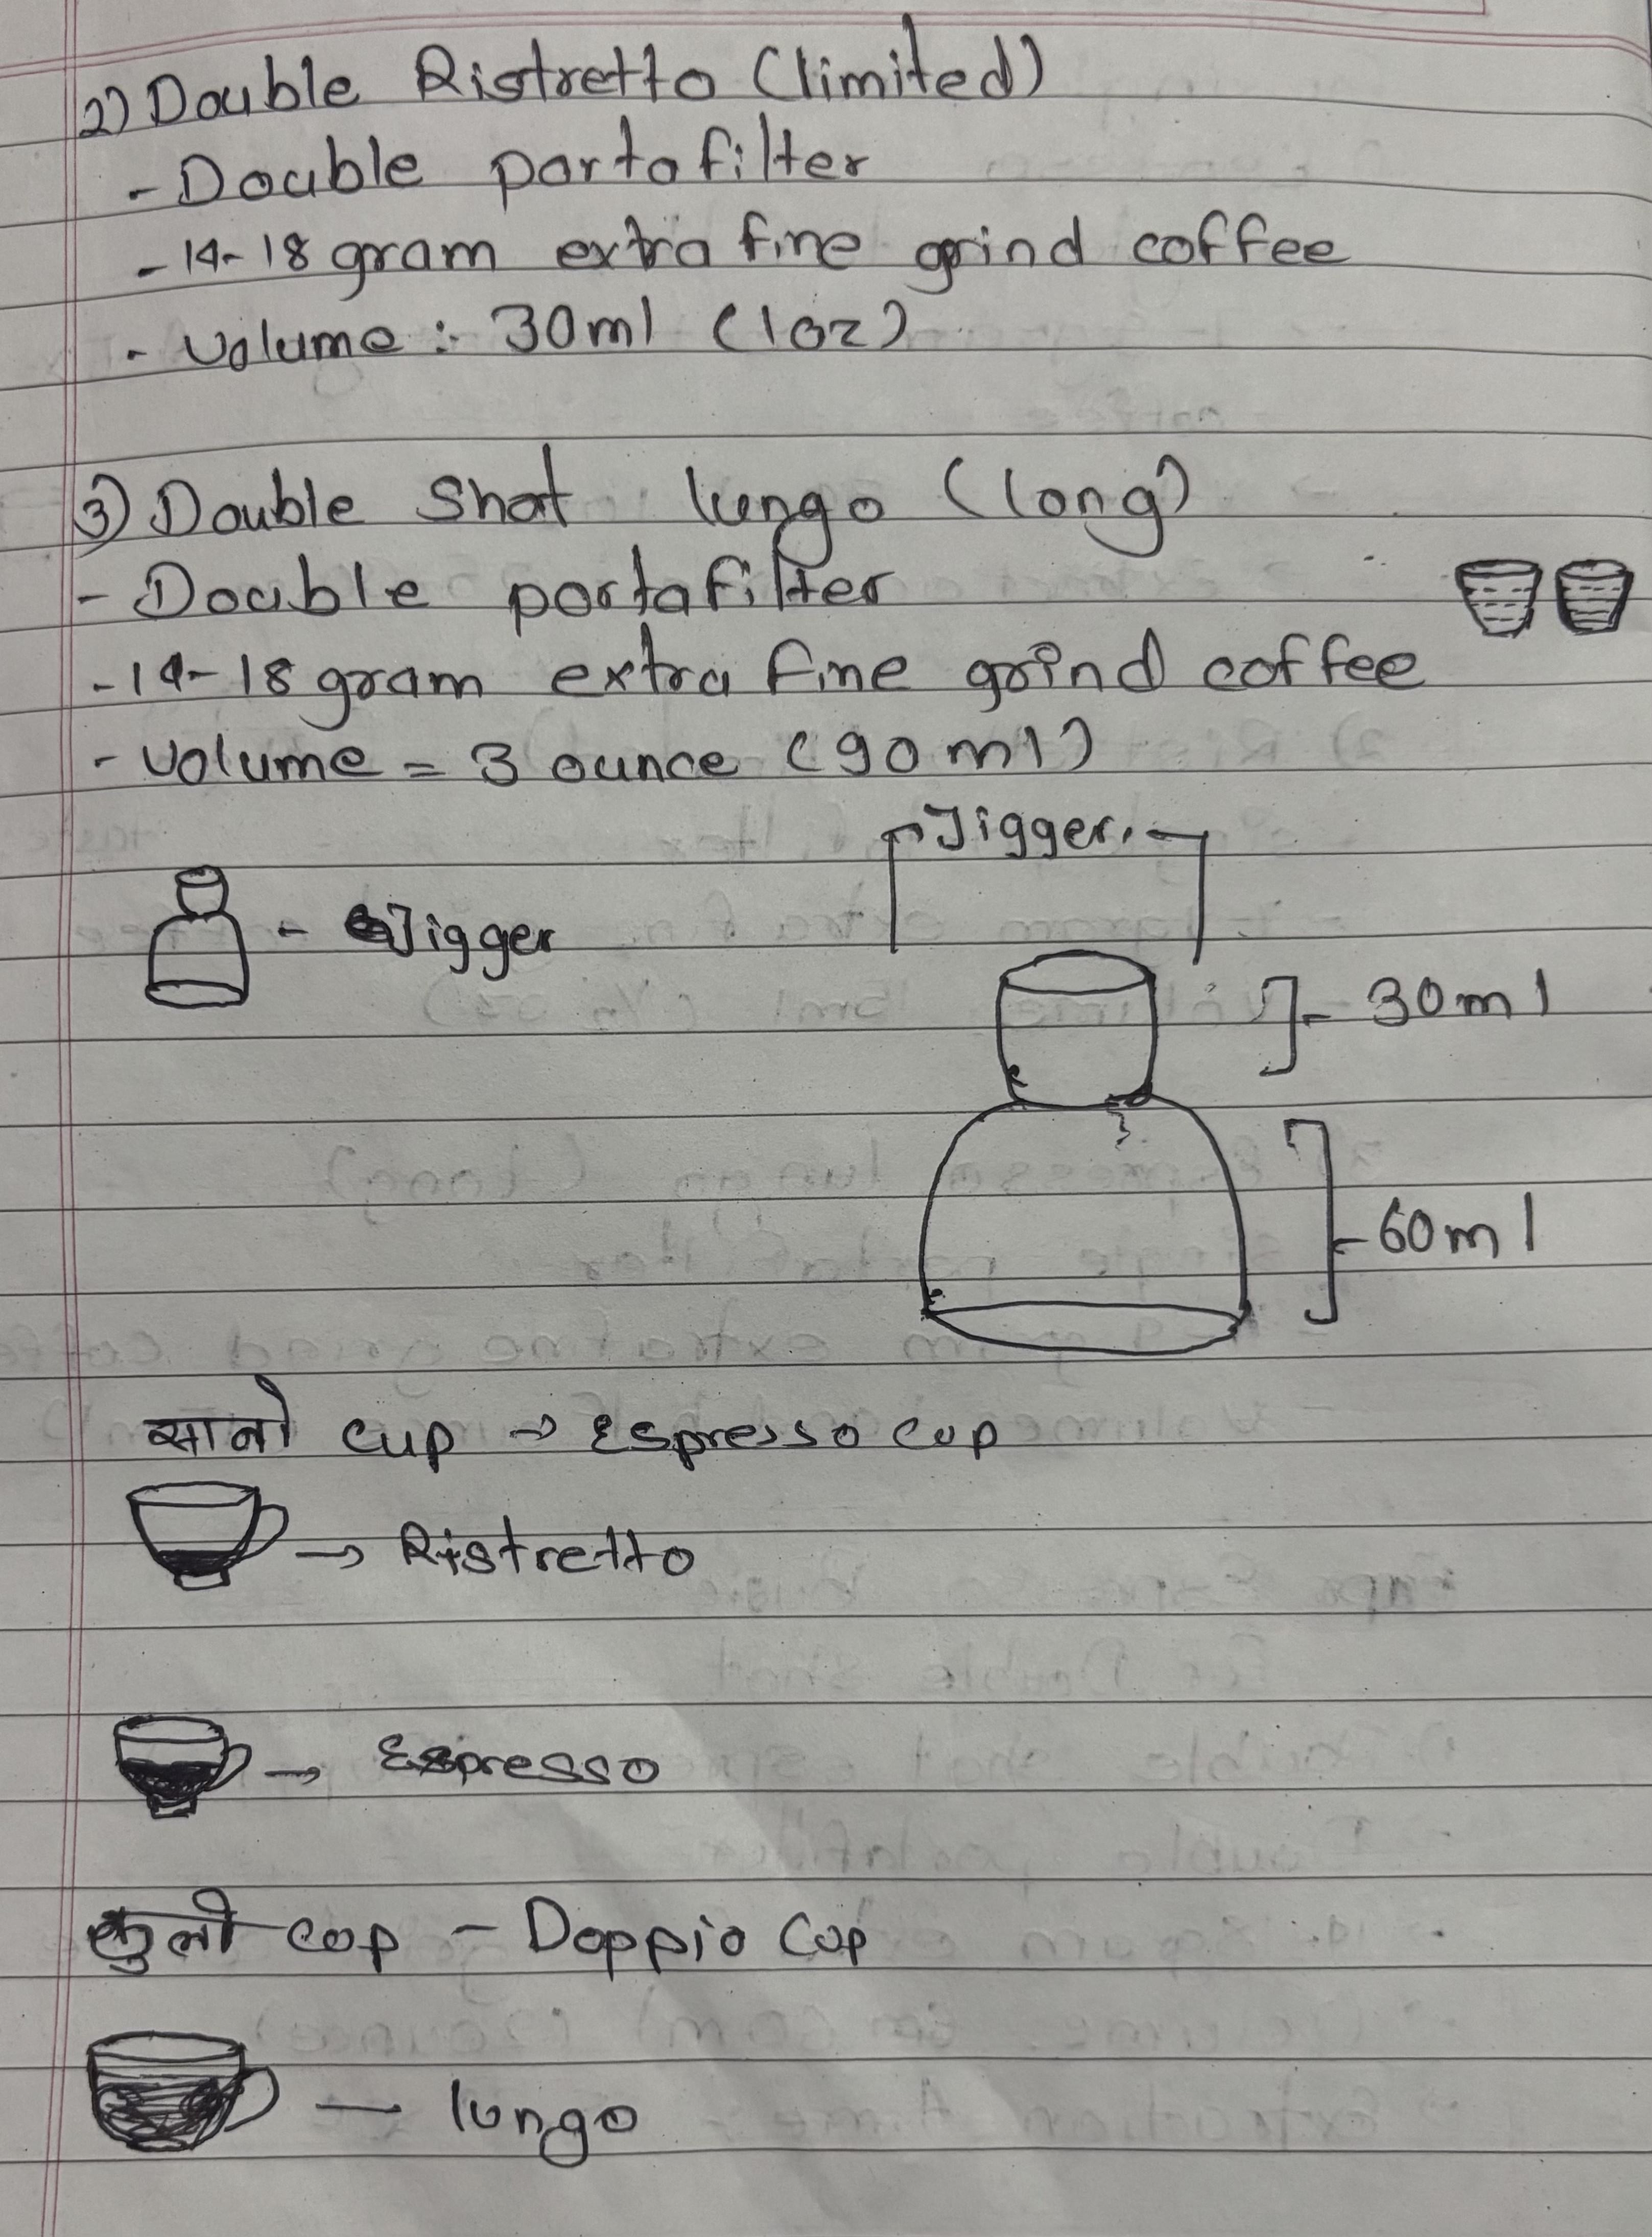 2) Double Ristretto (limited)
- Double portafilter
- 14-18 gram extra fine grind coffee
- Volume : 30ml (1oz)
3) Double Shot lungo (long)
- Double portafilter
- 14-18 gram extra fine grind coffee
- Volume = 3 ounce (90 ml)
Jigger.
- Jigger
30ml
60ml
सानो cup → Espresso cup
→ Ristretto
→ Espresso
cup - Doppio Cup
— lungo